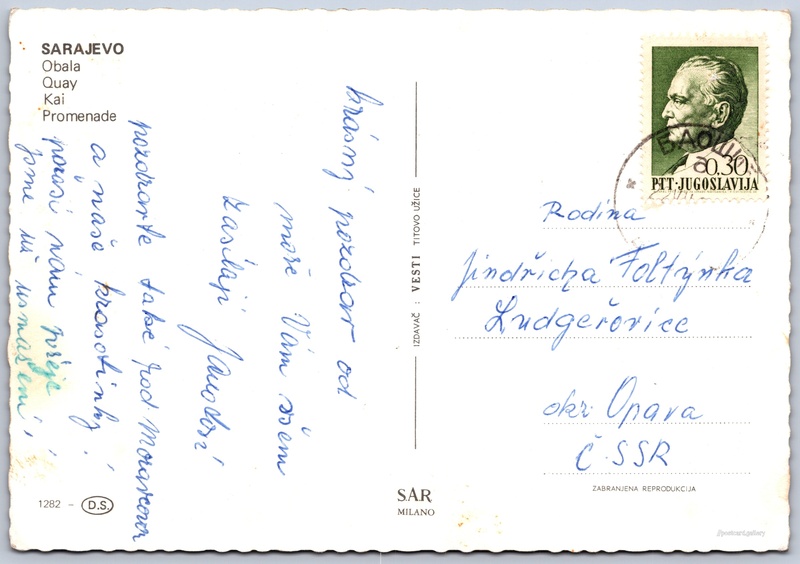 SARAJEVO
Obala
Quay
Kai
Promenade
krásný pozdrav od
moře Vám všem
zasílají Janoloví
pozdravte také rod. Moravcovu
a naše krasotinky!
počasí nám přeje
jsme už usmaženi!
1282 – D.S.
IZDAVAČ: VESTI TITOVO UŽICE
SAR
MILANO
БАОШ
0.30
PTT·JUGOSLAVIJA
Rodina
Jindřicha Foltýnka
Ludgeřovice
okr Opava
ČSSR
ZABRANJENA REPRODUKCIJA
//postcard.gallery